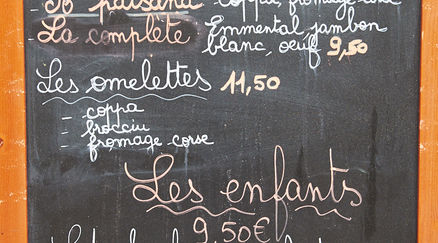 So paisanu coppa, fromage corse
La complète Emmental, jambon
blanc, oeuf 9,50
Les omelettes 11,50
- coppa
- brocciu
- fromage corse
Les enfants
9,50€